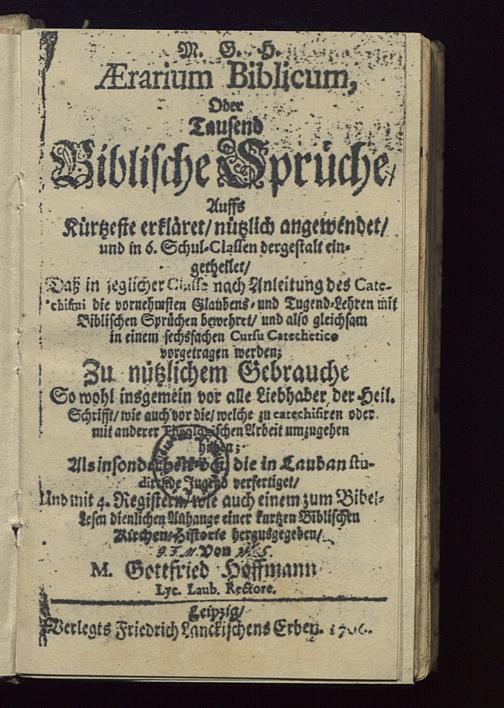 M. G. H.
Ærarium Biblicum,
Oder
Tausend
Biblische Sprüche/
Auffs
Kürtzeste erkläret/ nützlich angewendet/
und in 6. Schul-Classen dergestalt ein-
getheilet/
Daß in jeglicher Classe nach Anleitung des Cate-
chismi die vornehmsten Glaubens- und Tugend-Lehren mit
Biblischen Sprüchen bewehret/ und also gleichsam
in einem sechsfachen Cursu Catechetico
vorgetragen werden;
Zu nützlichem Gebrauche
So wohl insgemein vor alle Liebhaber der Heil.
Schrifft/ wie auch vor die/ welche zu catechisiren oder
mit anderer Theologischen Arbeit umzugehen
haben;
Als insonderheit vor die in Lauban stu-
dirende Jugend verfertiget/
Und mit 4. Registern/ wie auch einem zum Bibel-
Lesen dienlichen Anhange einer kurtzen Biblischen
Kirchen-Historie herausgegeben/
Von
M. Gottfried Hoffmann
Lyc. Laub. Rectore.
Leipzig/
Verlegts Friedrich Lanckischens Erben. 1706.